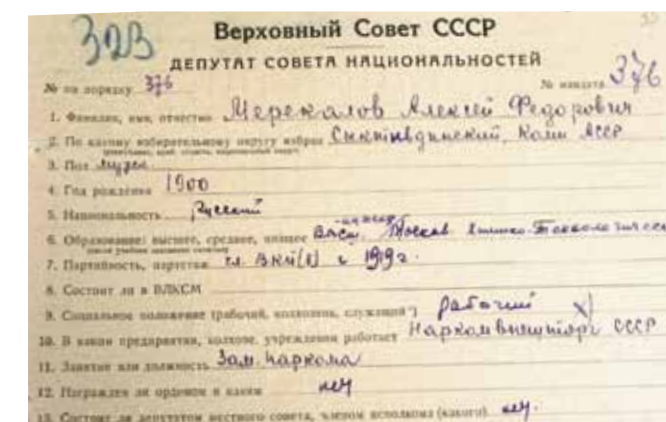 323
Верховный Совет СССР
ДЕПУТАТ СОВЕТА НАЦИОНАЛЬНОСТЕЙ
№ по порядку 376 № мандата 376
1. Фамилия, имя, отчество Мерекалов Алексей Федорович
2. По какому избирательному округу избран Сыктывдинский, Коми АССР
3. Пол мужск
4. Год рождения 1900
5. Национальность Русский
6. Образование: высшее, среднее, низшее Высш. Москов. Химико-Технологическ
7. Партийность, партстаж чл. ВКП(б) с 1919 г.
8. Состоит ли в ВЛКСМ
9. Социальное положение (рабочий, колхозник, служащий) рабочий x)
10. В каком предприятии, колхозе, учреждении работает Наркомвнешторг СССР
11. Занятие или должность Зам. наркома
12. Награжден ли орденом и каким нет
13. Состоит ли депутатом местного совета, членом исполкома (какого) нет.